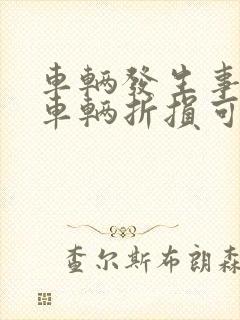 車輛發生事
車輛折損可
查尔斯布朗森